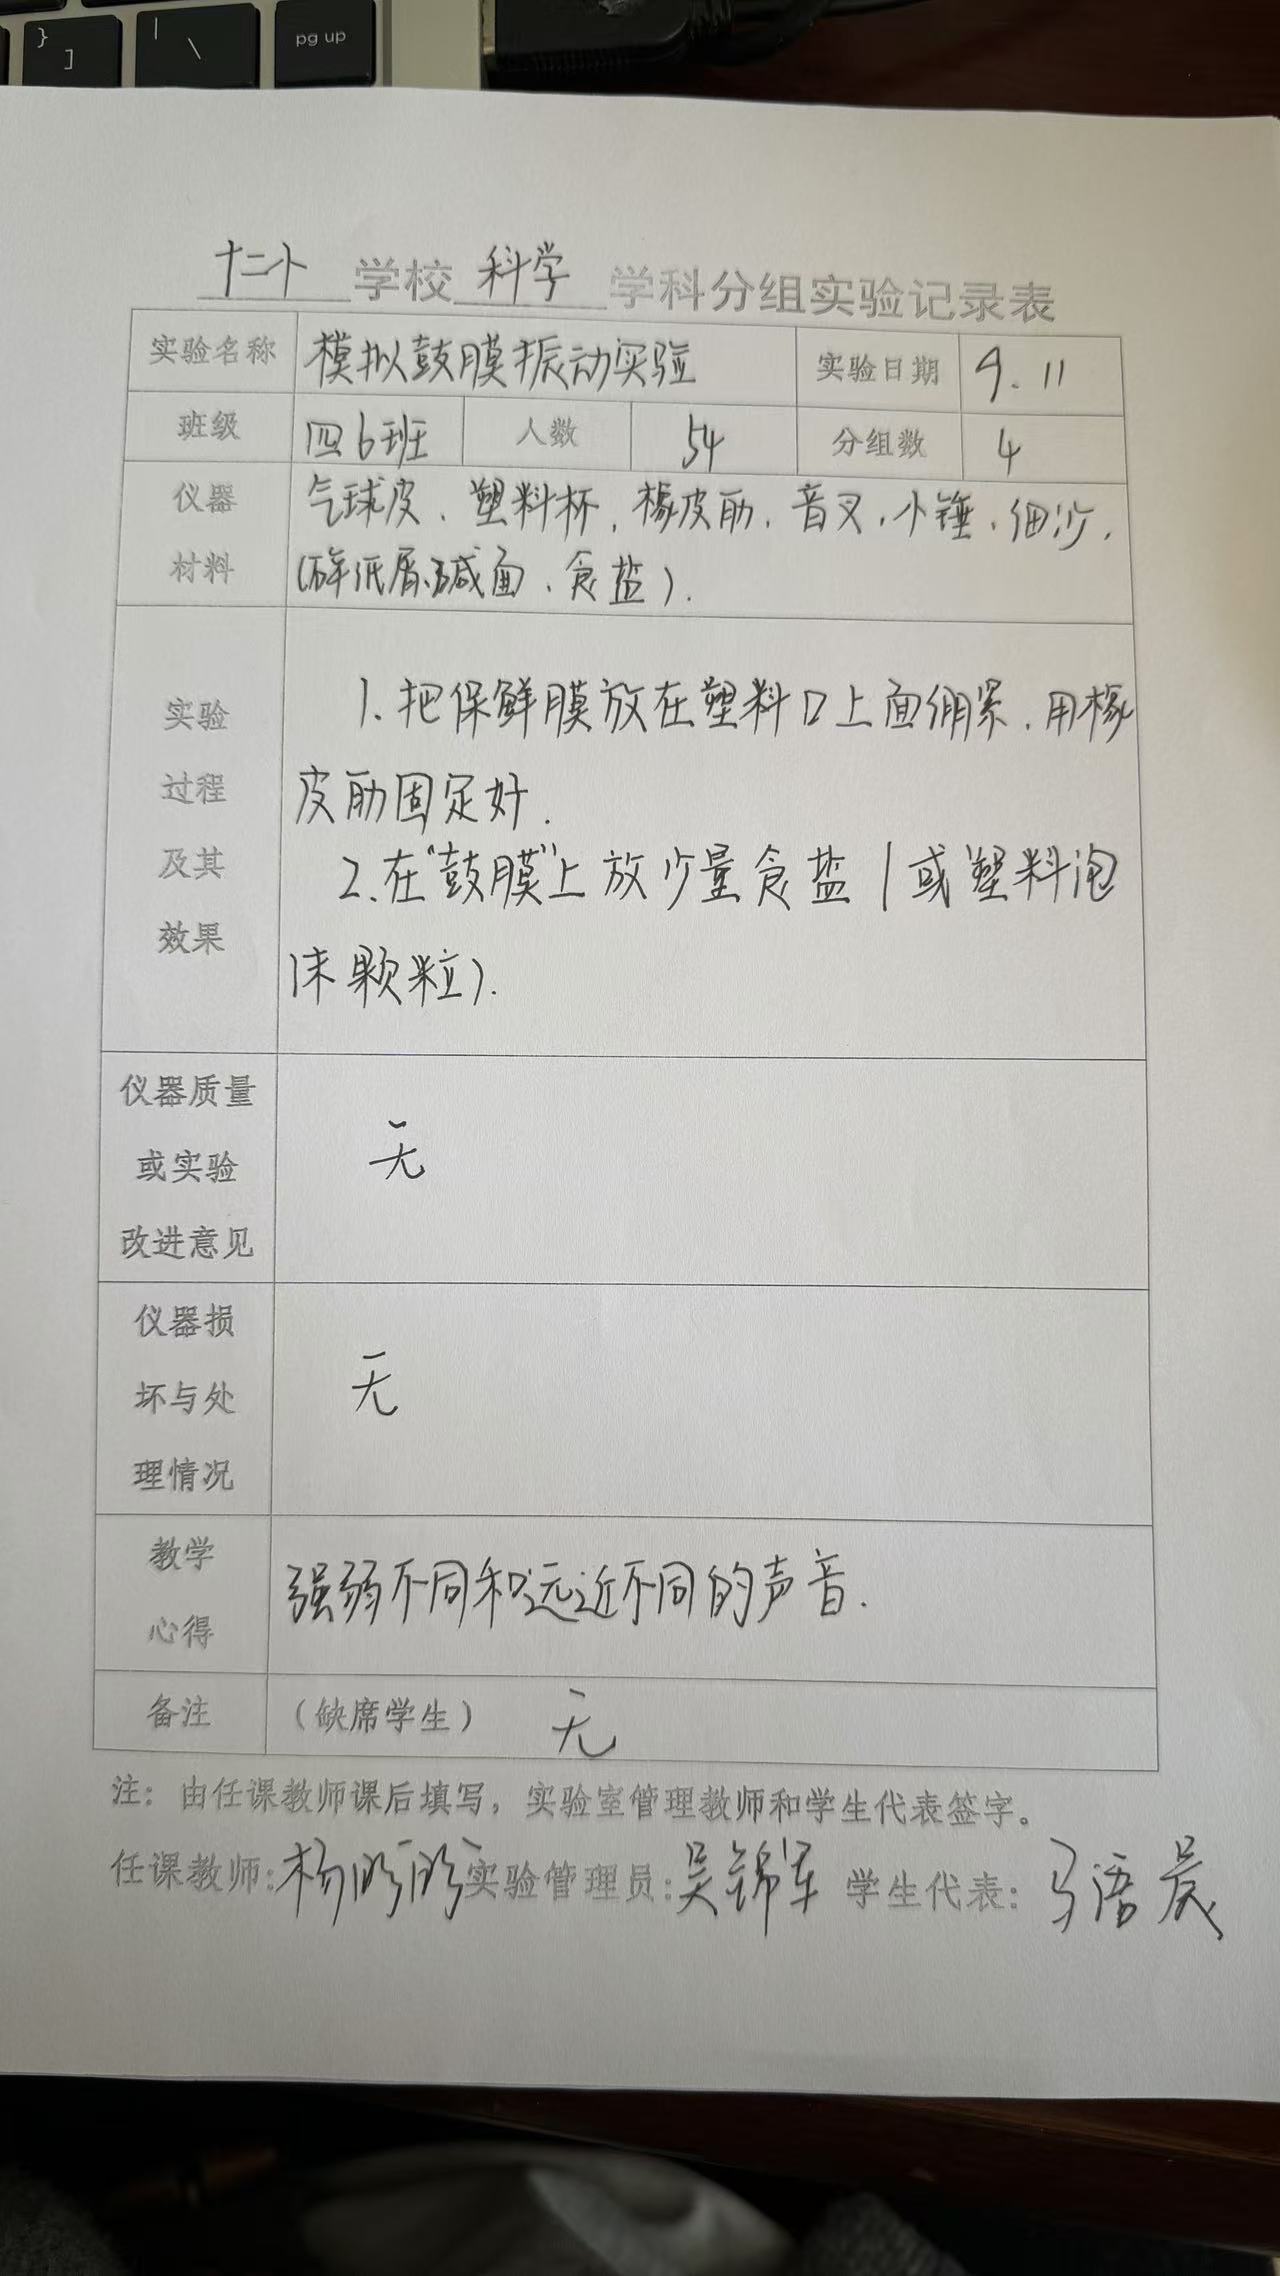 }
]
|
\
pg up
十二小学校科学学科分组实验记录表
实验名称 模拟鼓膜振动实验 实验日期 9.11
班级 四6班 人数 54 分组数 4
仪器 气球皮、塑料杯,橡皮筋,音叉,小锤、细沙,
材料 (碎纸屑、碱面、食盐).
实验 1.把保鲜膜放在塑料口上面绷紧,用橡
过程 皮筋固定好.
及其 2.在“鼓膜”上放少量食盐(或塑料泡
效果 沫颗粒).
仪器质量
或实验 无
改进意见
仪器损
坏与处 无
理情况
教学 强弱不同和远近不同的声音.
心得
备注 (缺席学生) 无
注:由任课教师课后填写,实验室管理教师和学生代表签字。
任课教师:杨 实验管理员:吴锦军 学生代表:马语晨